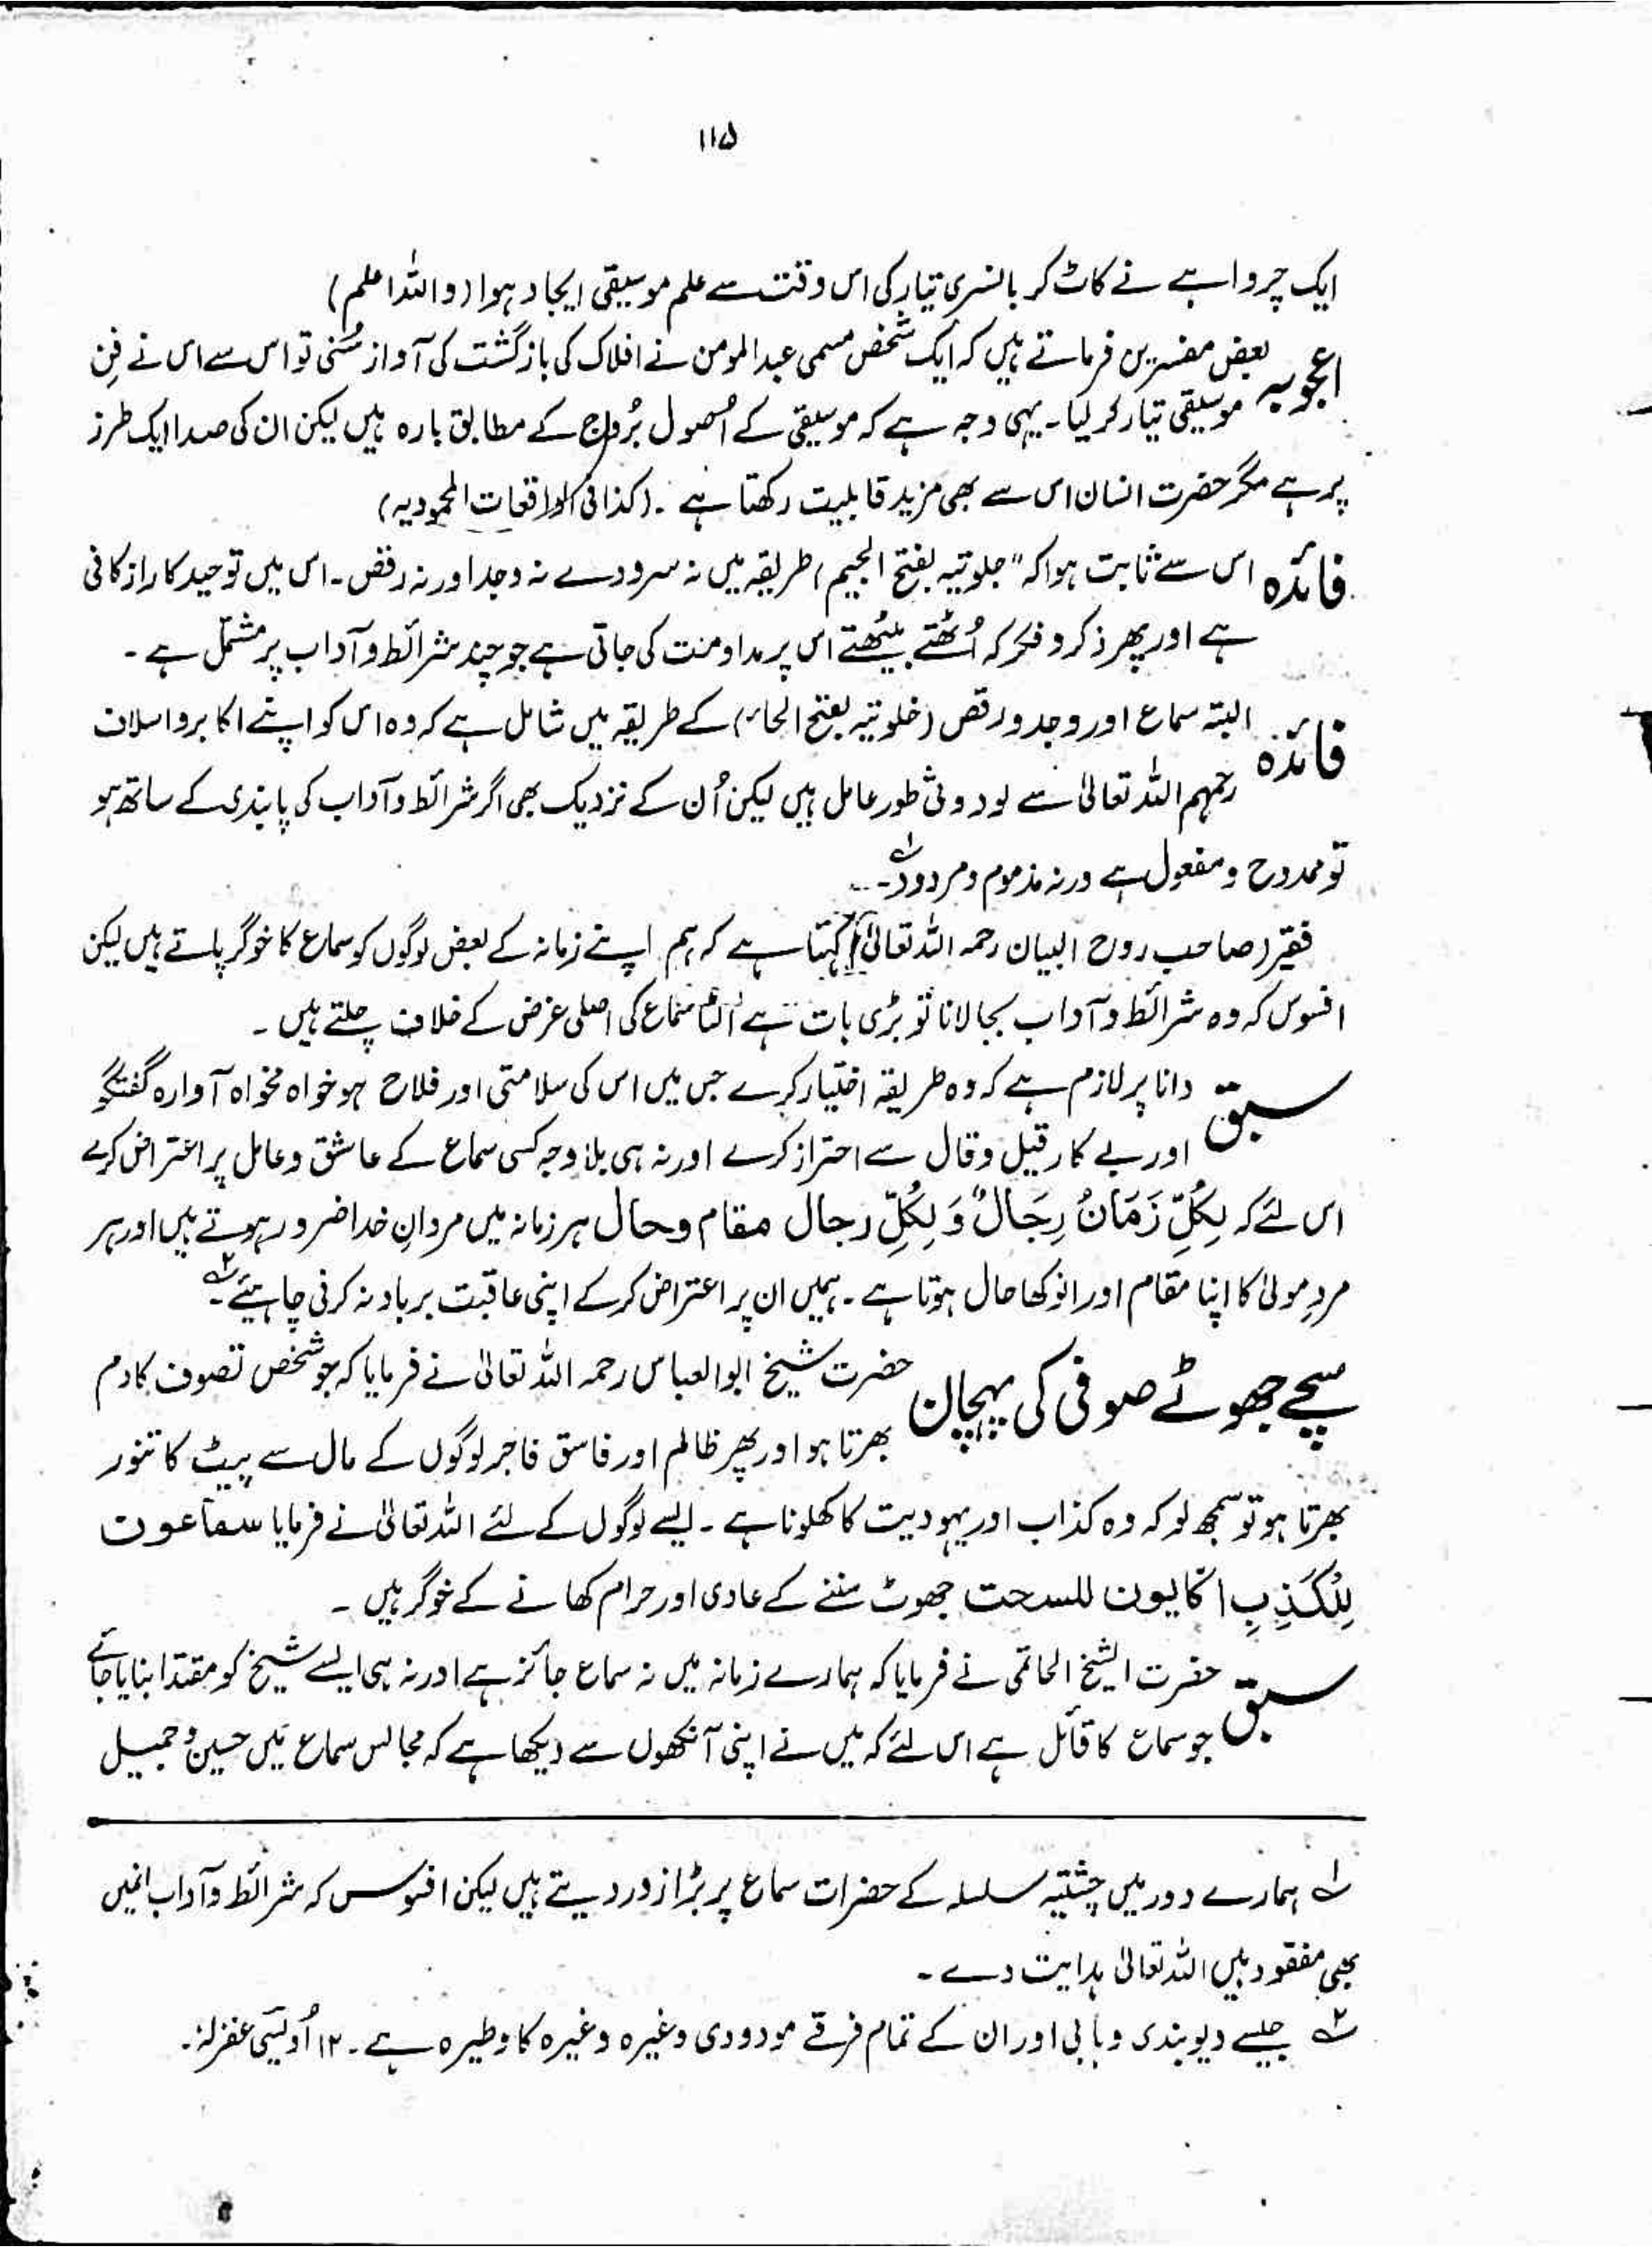 ۱۱۵
ایک چرواہے نے کاٹ کر بانسری تیار کی اس وقت سے علم موسیقی ایجاد ہوا (واللہ اعلم)
اعجوبہ بعض مفسرین فرماتے ہیں کہ ایک شخص مسمی عبد المومن نے افلاک کی بازگشت کی آواز سُنی تو اس سے اس نے فنِ
موسیقی تیار کر لیا۔ یہی وجہ ہے کہ موسیقی کے اُصول بُروج کے مطابق بارہ ہیں لیکن ان کی صدا ایک طرز
پر ہے مگر حضرت انسان اس سے بھی مزید قابلیت رکھتا ہے۔ (کذا فی الواقعات المحمودیہ)
فائدہ اس سے ثابت ہوا کہ "جلوتیہ بفتح الجیم) طریقہ میں نہ سرود ہے نہ وجد اور نہ رقص۔ اس میں توحید کا راز کافی
ہے اور پھر ذکر و فکر کہ اُٹھتے بیٹھتے اس پر مداومت کی جاتی ہے جو چند شرائط و آداب پر مشتمل ہے۔
فائدہ البتہ سماع اور وجد و رقص (خلوتیہ بفتح الخاء) کے طریقہ میں شامل ہے کہ وہ اس کو اپنے اکابر و اسلاف
رحمہم اللہ تعالیٰ سے لور وثی طور عامل ہیں لیکن اُن کے نزدیک بھی اگر شرائط و آداب کی پابندی کے ساتھ ہو
تو ممدوح و مفعول ہے ورنہ مذموم و مردود۔ ۱ے
فقیر (صاحب روح البیان رحمہ اللہ تعالیٰ) کہتا ہے کہ ہم اپنے زمانہ کے بعض لوگوں کو سماع کا خوگر پاتے ہیں لیکن
افسوس کہ وہ شرائط و آداب بجا لانا تو بڑی بات ہے اُلٹا سماع کی اصلی غرض کے خلاف چلتے ہیں۔
سبق دانا پر لازم ہے کہ وہ طریقہ اختیار کرے جس میں اس کی سلامتی اور فلاح ہو خواہ مخواہ آوارہ گفتگو
اور بے کار قیل و قال سے احتراز کرے اور نہ ہی بلا وجہ کسی سماع کے عاشق و عامل پر اعتراض کرے
اس لئے کہ لِکُلِّ زَمَانُ رِجَالٌ وَ لِکُلِّ رجال مقام وحال ہر زمانہ میں مردانِ خدا ضرور ہوتے ہیں اور ہر
مردِ مولیٰ کا اپنا مقام اور انوکھا حال ہوتا ہے۔ ہمیں ان پر اعتراض کر کے اپنی عاقبت برباد نہ کرنی چاہیئے۔ ۲ے
سچے جھوٹے صوفی کی پہچان حضرت شیخ ابو العباس رحمہ اللہ تعالیٰ نے فرمایا کہ جو شخص تصوف کا دم
بھرتا ہو اور پھر ظالم اور فاسق فاجر لوگوں کے مال سے پیٹ کا تنور
بھرتا ہو تو سمجھ لو کہ وہ کذاب اور یہودیت کا کھلونا ہے۔ ایسے لوگوں کے لئے اللہ تعالیٰ نے فرمایا سماعون
لِلْکَذِبِ اکالون للسحت جھوٹ سننے کے عادی اور حرام کھانے کے خوگر ہیں۔
سبق حضرت الشیخ الحاتمی نے فرمایا کہ ہمارے زمانہ میں نہ سماع جائز ہے اور نہ ہی ایسے شیخ کو مقتدا بنایا جائے
جو سماع کا قائل ہے اس لئے کہ میں نے اپنی آنکھوں سے دیکھا ہے کہ مجالس سماع میں حسین و جمیل
۱ے ہمارے دور میں چشتیہ سلسلہ کے حضرات سماع پر بڑا زور دیتے ہیں لیکن افسوس کہ شرائط و آداب انہیں
بھی مفقود ہیں اللہ تعالیٰ ہدایت دے۔
۲ے جیسے دیوبندی وہابی اور ان کے تمام فرقے مودودی وغیرہ وغیرہ کا وطیرہ ہے۔ ۱۲ اُویسی غفرلہٗ۔